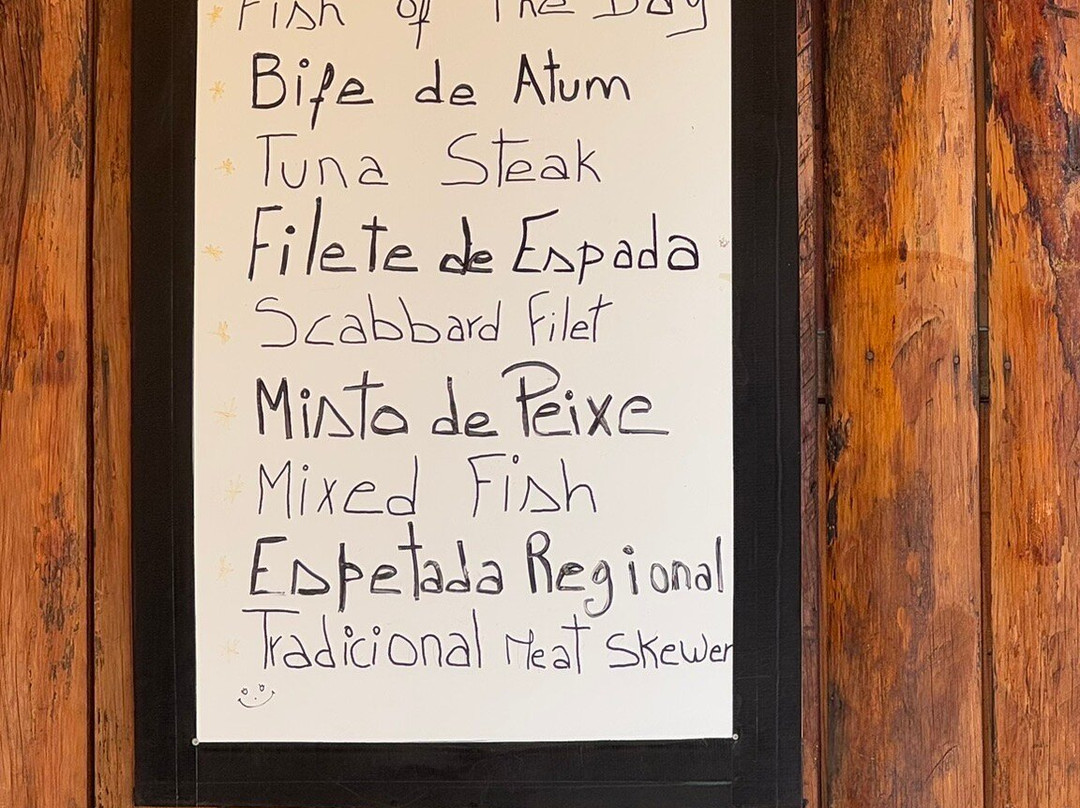 Fish of The Day
Bife de Atum
Tuna Steak
Filete de Espada
Scabbard Filet
Misto de Peixe
Mixed Fish
Espetada Regional
Tradicional Meat Skewer